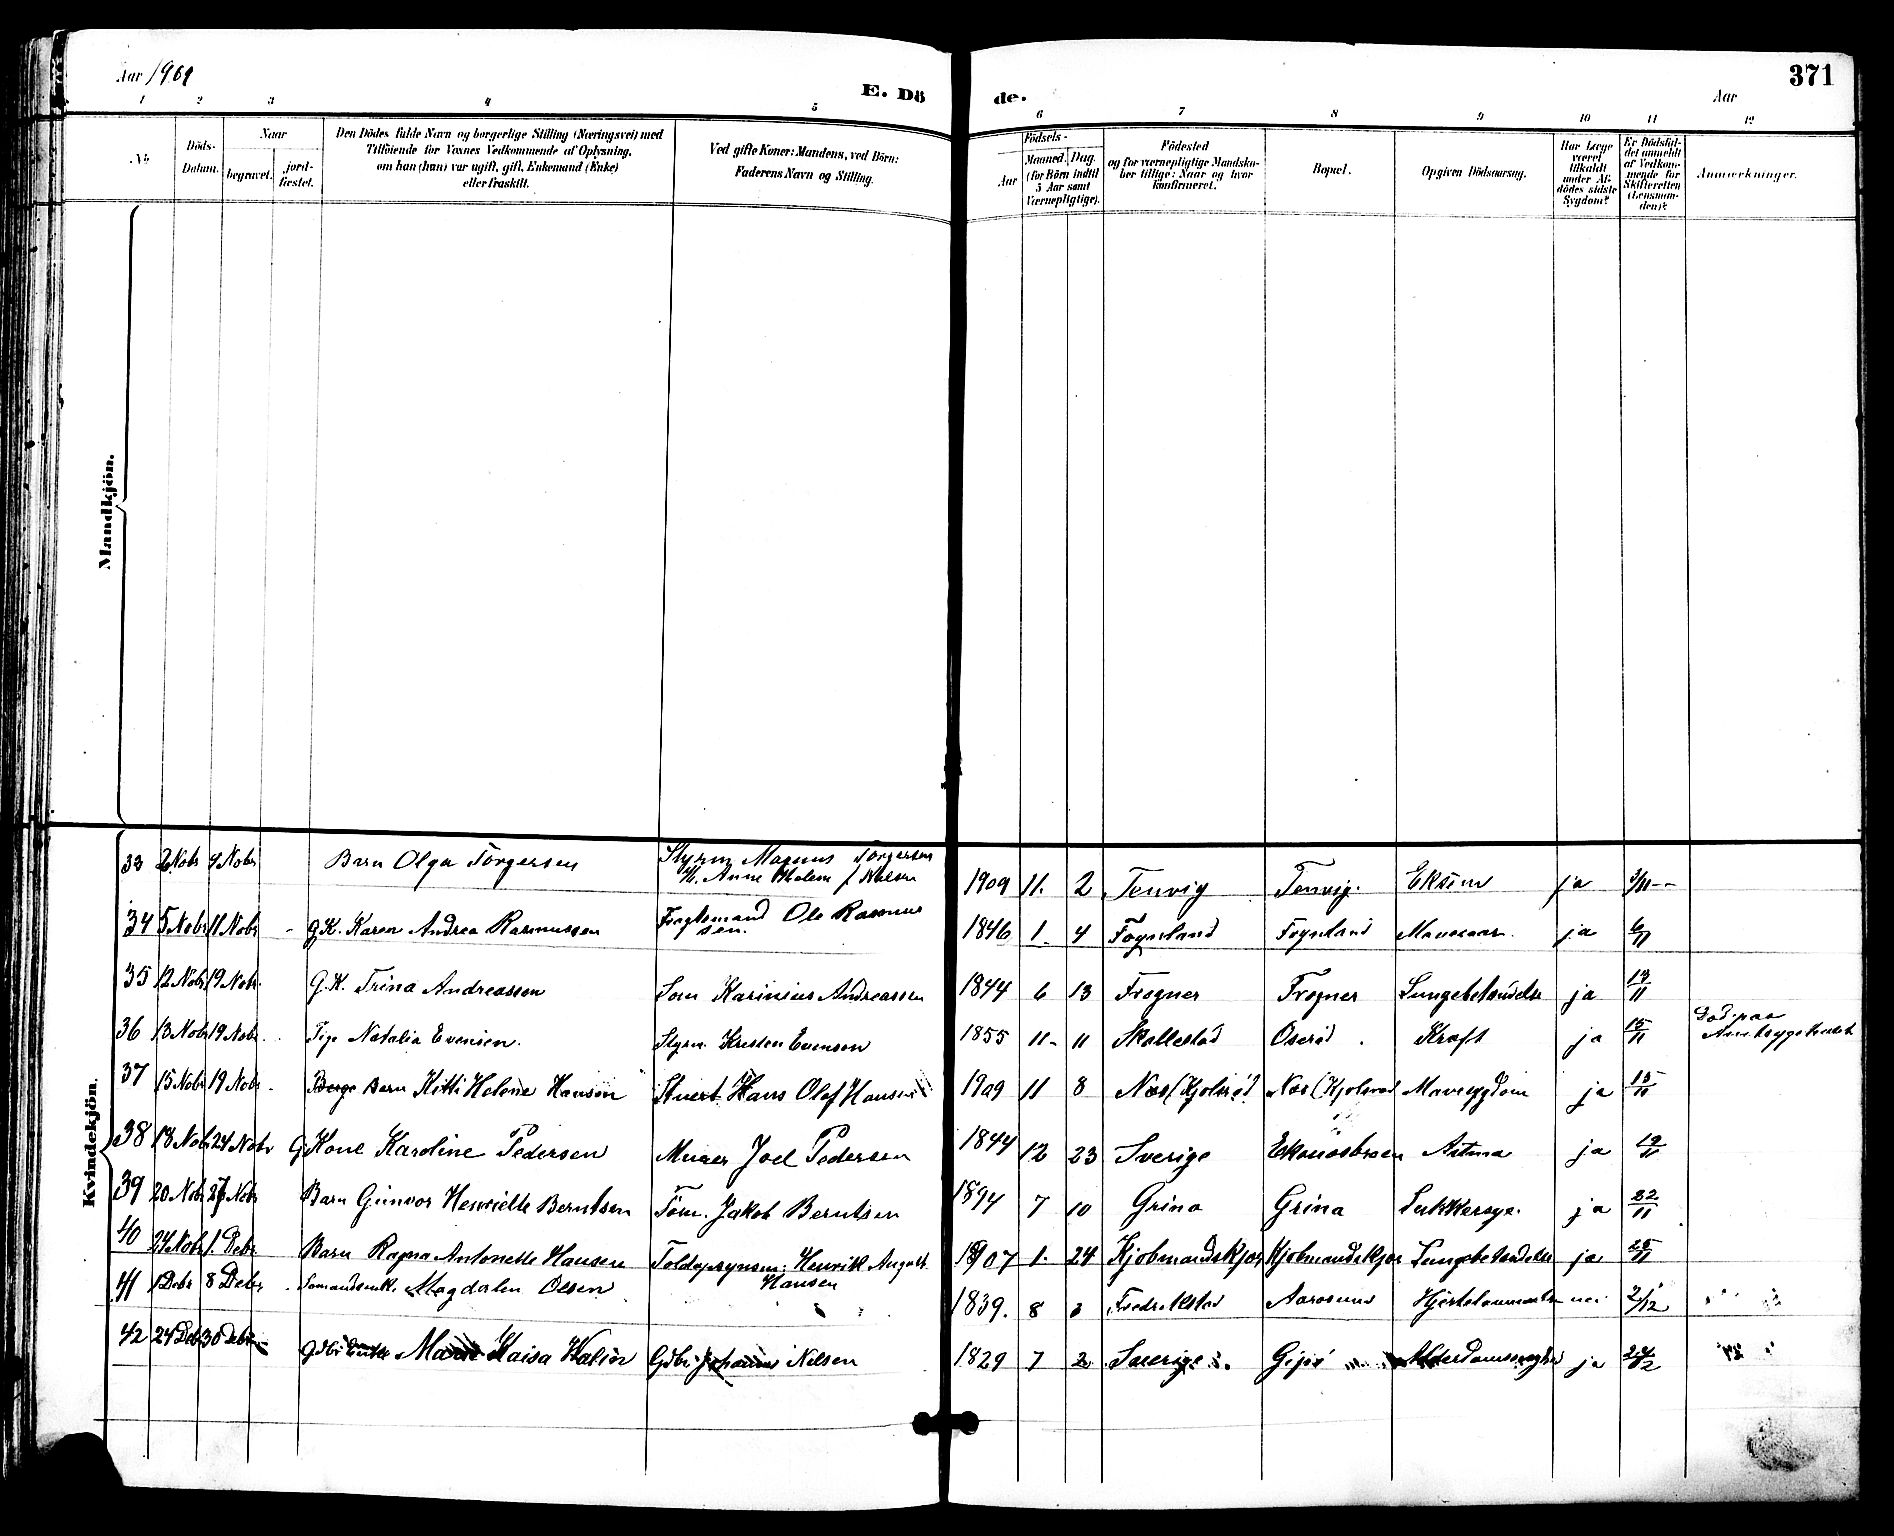 Aar 1909
E. Dö
de.
Aar
371
1 2 3 4 5 6 7 8 9 10 11 12
No.
Döds-Datum.
Naar
begravet.
jord-fæstet.
Den Dödes fulde Navn og borgerlige Stilling (Næringsvei) med
Tilföiende for Voxnes Vedkommende af Oplysning,
om han (hun) var ugift, gift, Enkemand (Enke)
eller fraskilt.
Ved gifte Koner: Mandens, ved Börn:
Faderens Navn og Stilling.
Födsels-
Aar
Maaned. Dag.
(for Börn indtil
5 Aar samt
Værnepligtige).
Födested
og for værnepligtige Mandska-
ber tillige: Naar og hvor
konfirmeret.
Bopæl.
Opgiven Dödsaarsag.
Har Læge
været
tilkaldt
under Af-
dödes sidste
Sygdom?
Er Dödsfal-
det anmeldt
af Vedkom-
mende for
Skifteretten
(Lensman-
den)?
Anmærkninger.
Mandkjön.
Kvindekjön.
33 2 Nobr 9 Nobr Barn Olga Torgersen Styrm Magnus Torgersen
H. Anne Helene f. Nilsen 1909 11. 2 Tenvig Tenvig. Eksem ja 3/11
34 5 Nobr 11 Nobr - G.K. Karen Andrea Rasmussen Fragtemand Ole Rasmus
sen. 1846 1. 4 Fognland Fognland Mavesaar. ja 6/11
35 12 Nobr 19 Nobr. G.K. Trina Andreassen Søm Karinius Andreassen 1844 6 13 Frogner Frogner Lungebetændelse ja 13/11
36 13 Nobr 19 Nobr. Pige Natalia Evensen. Styrm. Kristen Evensen 1855 11 11 Skallestad Oserød. Kræft ja 15/11 Død paa
Amtssygehuset
37 15 Nobr 19 Nobr. Barn Kitti Helene Hansen Stuert Hans Olaf Hansen 1909 11 8 Næs (Kjølerød. Næs (Kjølerød Mavesygdom ja 15/11
38 18 Nobr 24 Nobr G Kone Karoline Pedersen Murer Joel Pedersen 1844 12 23 Sverige Ekenesbraen Astma ja 19/11
39 20 Nobr 27 Nobr Barn Gunvor Henriette Berntsen Tøm. Jakob Berntsen 1894 7 10 Grina Grina Sukkersyge. ja 22/11
40 24 Nobr 1. Debr Barn Ragna Antonette Hansen Toldopsynsm: Henrik August
Hansen 1907 1. 24 Kjøbmandskjær Kjøbmandskjær Lungebetændelse ja 25/11
41 1 Debr 8 Debr. Sømandsenk. Magdalen Olsen 1839. 8 3 Fredrikstad Aarøsund Hjertelammelse nei 2/12
42 24 Debr 30 Debr Gdbr Enke Kaisa Nelsen Gdbr Johannes Nelsen 1829 7 2 Sverige Gipø Alderdomssvaghed ja 24/12